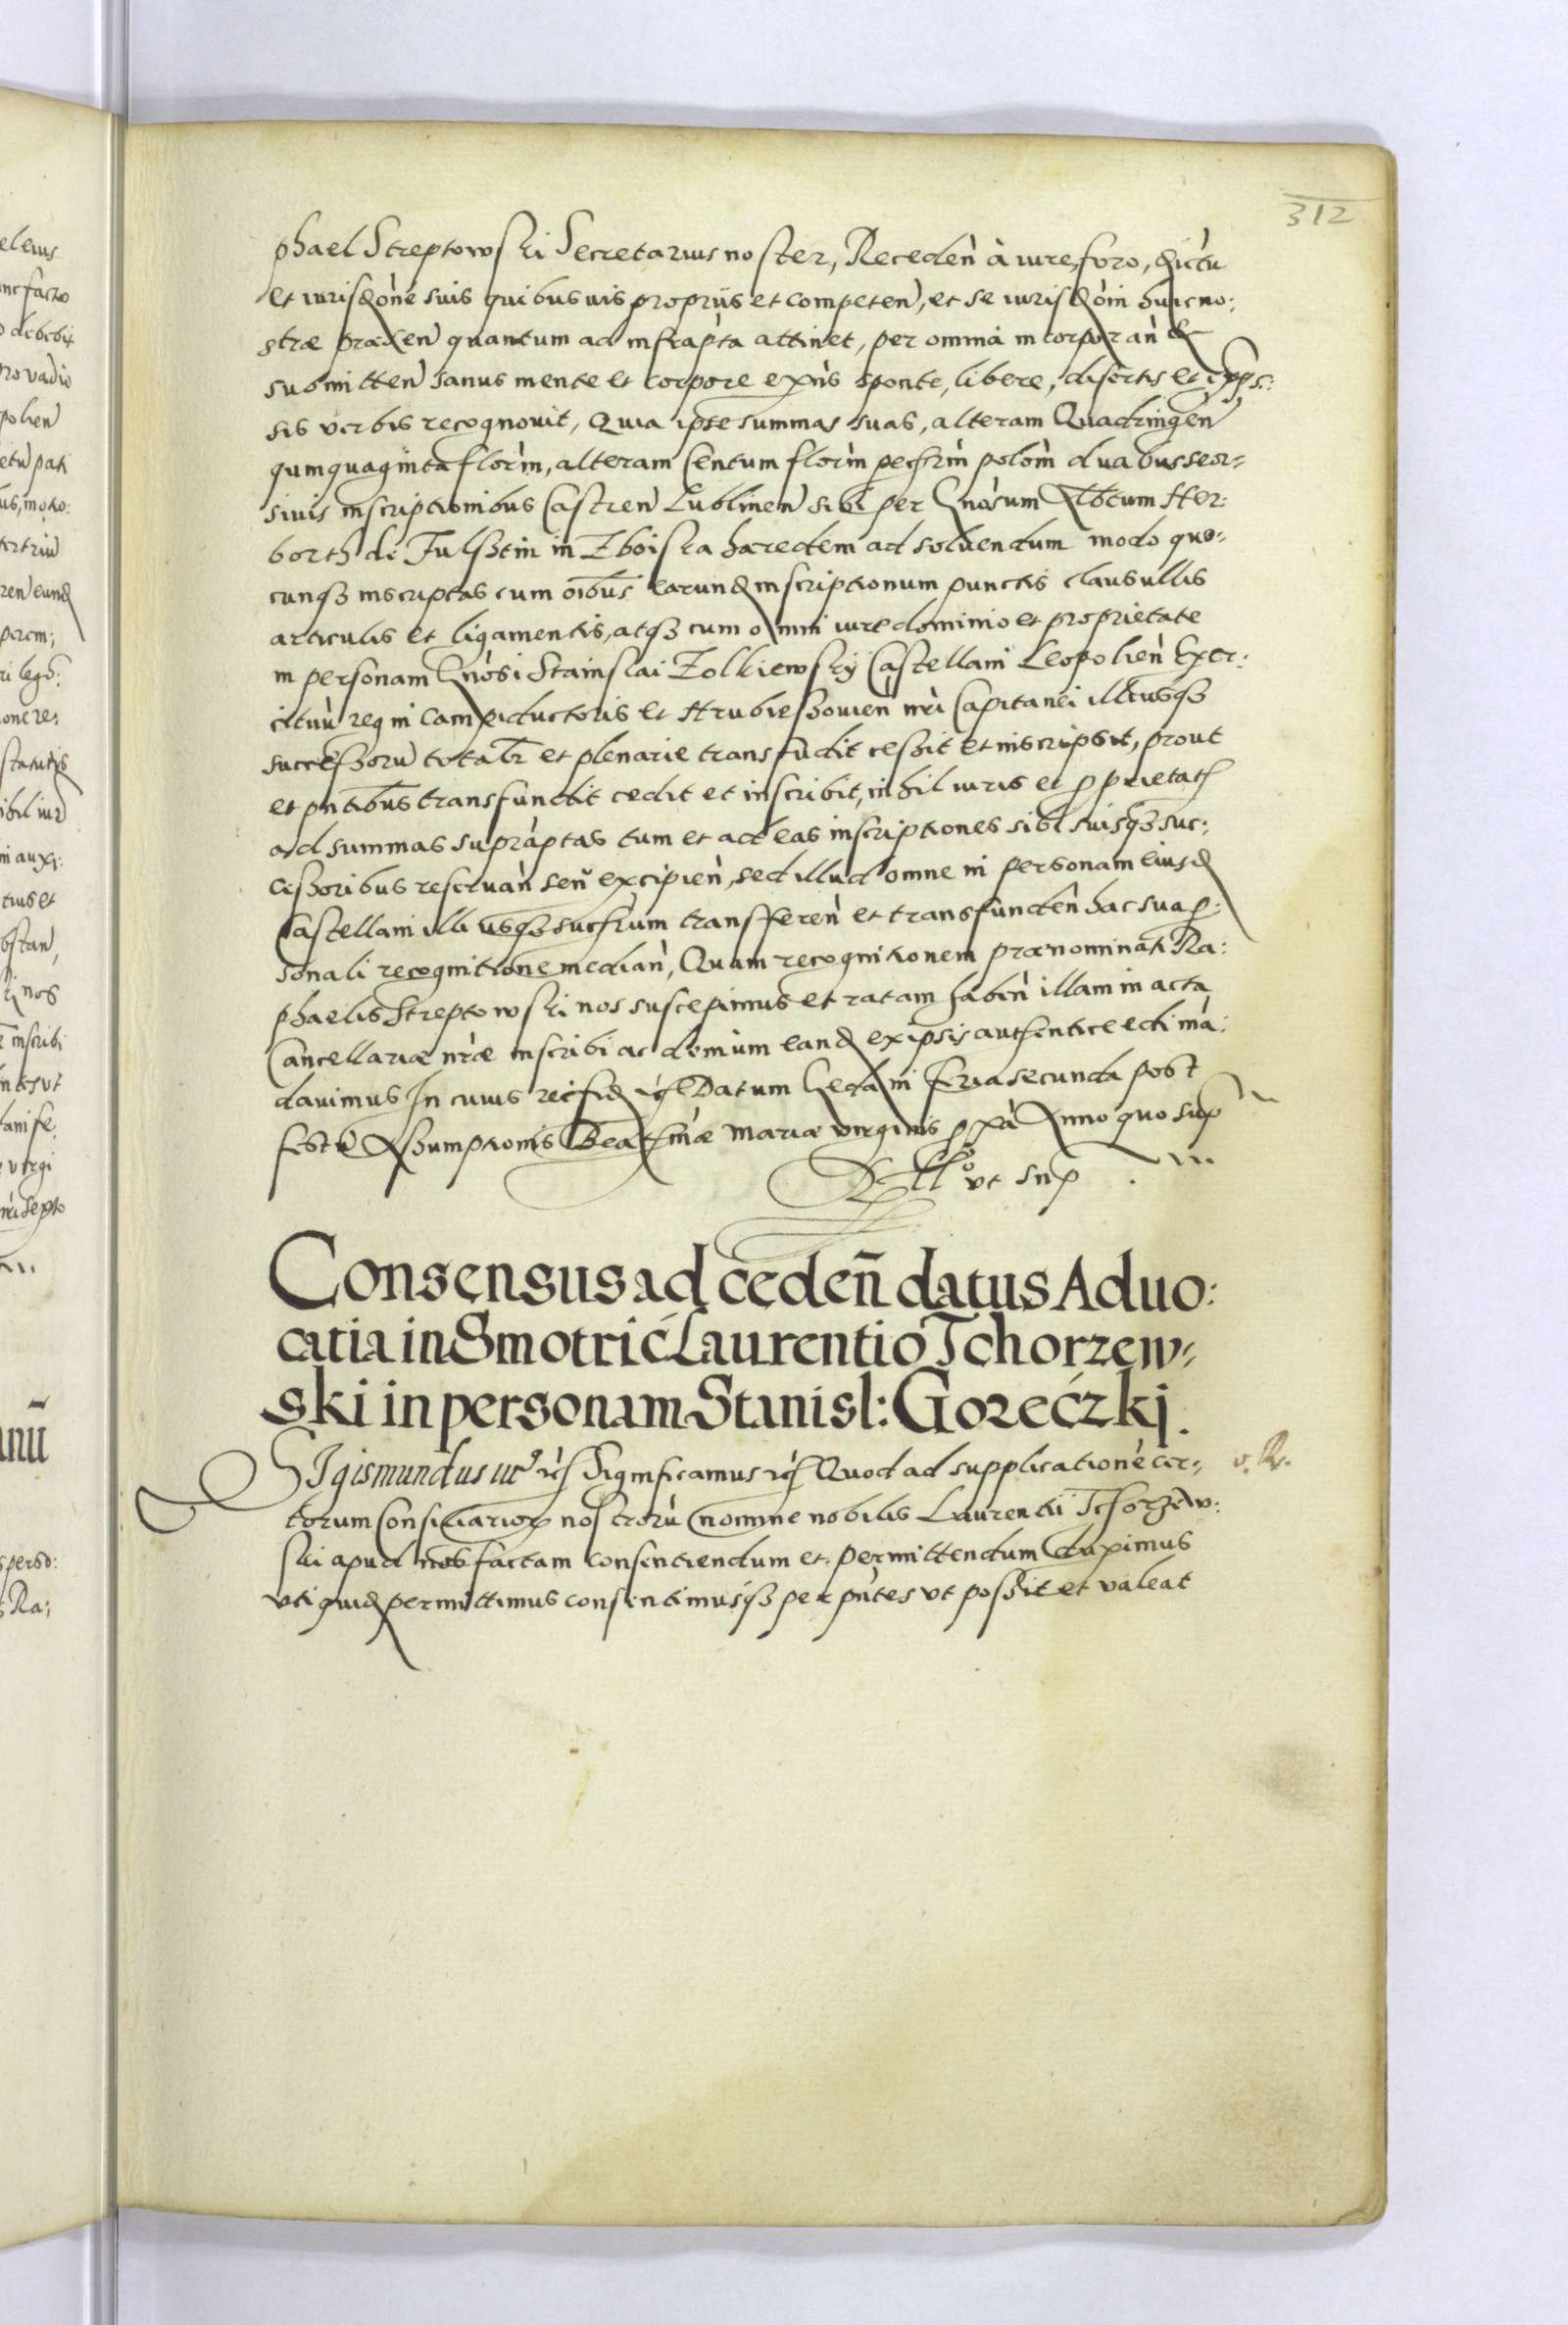 312
phael Streptowski Secretarius noster, Receden à iure, foro, districtu
et iurisdone suis quibusuis propriis et competen, et se iurisdoni huic no:
stræ præsen quantum ad infrapta attinet, per omnia incorporan &
submitten sanus mente et corpore exns sponte, libere, disertis et expres:
sis verbis recognouit, Quia ipse summas suas, alteram Quadringen
quinquaginta florin, alteram Centum florin pecun polon duabus seor=
siuis inscriptionibus Castren Lublinen sibi per Gnosum Herbor
borth de Fulsztin in Zboiska hæredem ad soluendum modo quo=
cunqz inscriptas cum oibus earund inscriptionum punctis clausullis
articulis et ligamentis, atqz cum omni iure dominio et proprietate
in personam Gnosi Stanislai Zolkiewskij Castellani Leopolien Exer:
cituu regni Campiductoris et Hrubieszouien nri Capitanei illiusqz
successoru totalr et plenarie transfudit cessit et inscripsit, prout
et pntibus transfundit cedit et inscribit, nihil iuris et pprietatis
ad summas supraptas tum et ad eas inscriptiones sibi suisqz suc:
cessoribus reseruan seu excipien, sed illud omne in personam eiusd
Castellani illiusqz sucrum transferen et transfunden hac sua p:
sonali recognitione median, Quam recognitionem prænominati Ra:
phaelis Streptowski nos suscepimus et ratam haben illam in acta
Cancellariæ nræ inscribi ac demum eand ex ipsis authentice edi ma:
dauimus In cuius rei fid &c Datum Gedani feria secunda post
festu Assumptionis Beatissmæ Mariæ virginis pxa Anno quo sup
ut sup
Consensus ad ceden datus Aduo:
catia in Smotric Laurentio Tchorzew=
ski in personam Stanisl: Goreczkj.
Sigismundus iii &c Significamus &c Quod ad supplicatione cer=
torum Consiliarior nostroru nomine nobilis Laurentii Tchorzew:
ski apud nos factam consentiendum et permittendum duximus
vti quid permittimus consentimusqz per pntes vt possit et valeat